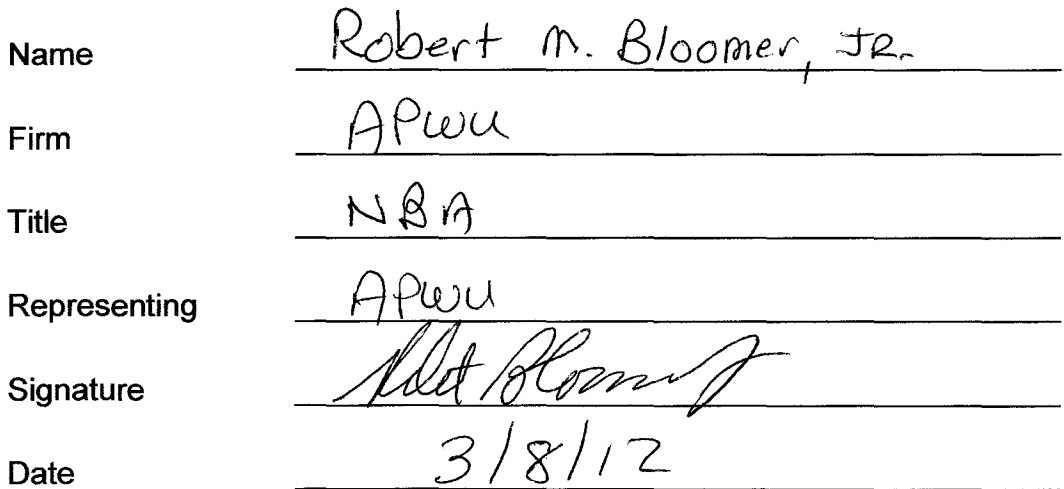 Name Robert M. Bloomer, JR.
Firm APWU
Title NBA
Representing APWU
Signature Robt Bloomer Jr
Date 3/8/12